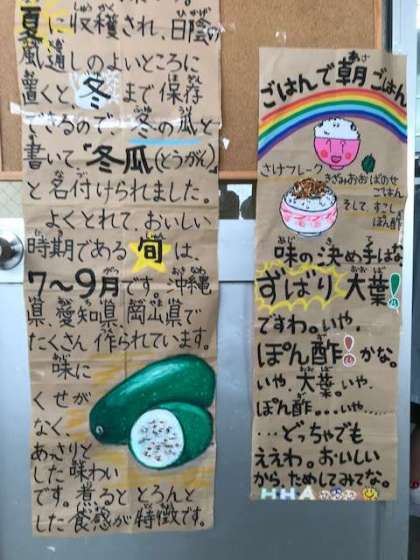 夏に収穫され、日陰の
風通しのよいところに
置くと、冬まで保存
できるので冬の瓜と
書いて"冬瓜(とうがん)"
と名付けられました。
よくとれて、おいしい
時期である旬は、
7〜9月です。沖縄
県、愛知県、岡山県で
たくさん作られています。
味に
くせが
なく、
あっさりと
した味わい
です。煮るととろんと
した食感が特徴です。
ごはんで朝ごはん
さけフレーク
きざみおおばのせ
ごはん
そして、すこし
ぽん酢
味の決め手はな、
ずばり大葉!
ですわ。いや、
ぽん酢!かな。
いや、大葉。いや、
ぽん酢……いや……
…どっちゃでも
ええわ。おいしい
から、ためしてみてな。